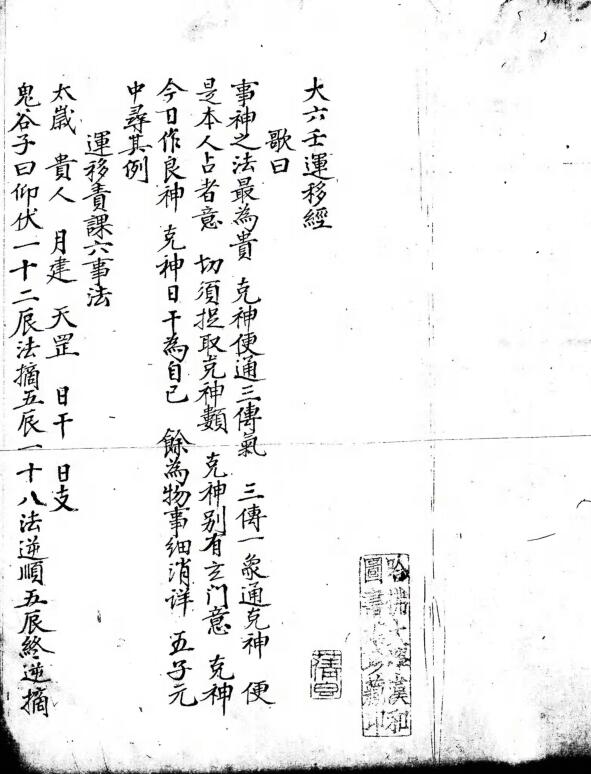 大六壬運移經
歌曰
事神之法最為貴 克神便通三傳氣 三傳一象通克神 便
是本人占者意 切須捉取克神類 克神别有玄门意 克神
今日作良神 克神日干為自己 餘為物事细消详 五子元
中尋其例
運移責課六事法
太嵗 貴人 月建 天罡 日干 日支
鬼谷子曰仰伏一十二辰法摘五辰一十八法逆順五辰終逆摘
哈佛大學漢和
圖書館珍藏印